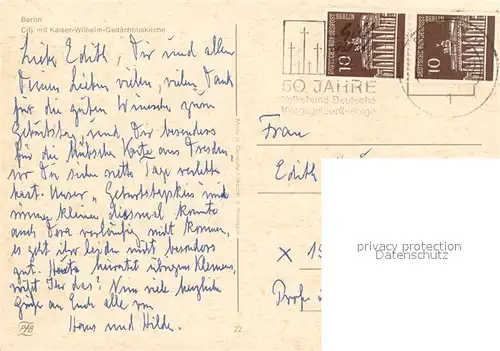 Berlin
City mit Kaiser-Wilhelm-Gedächtniskirche
Liebe Edith, Dir und allen
Deinen Lieben vielen, vielen Dank
für die guten Wünsche zum
Geburtstag und Dir besonders
für die hübsche Karte aus Dresden,
wo Du sicher nette Tage verlebt
hast. Unser "Geburtstagskreis" wird
immer kleiner, diesmal konnte
auch Dora vorläufig nicht kommen,
es geht ihr leider nicht besonders
gut. Heute heiratet übrigens Klemens,
wißt Ihr das? Nun viele herzliche
Grüße an Euch alle von
Hans und Hilde.
PAB
22
DEUTSCHE BUNDESPOST BERLIN
10
DEUTSCHE BUNDESPOST BERLIN
10
50 JAHRE
Volksbund Deutsche
Kriegsgräberfürsorge
1
Frau
Edith
X 19
Prof
privacy protection
www.oldthing.de